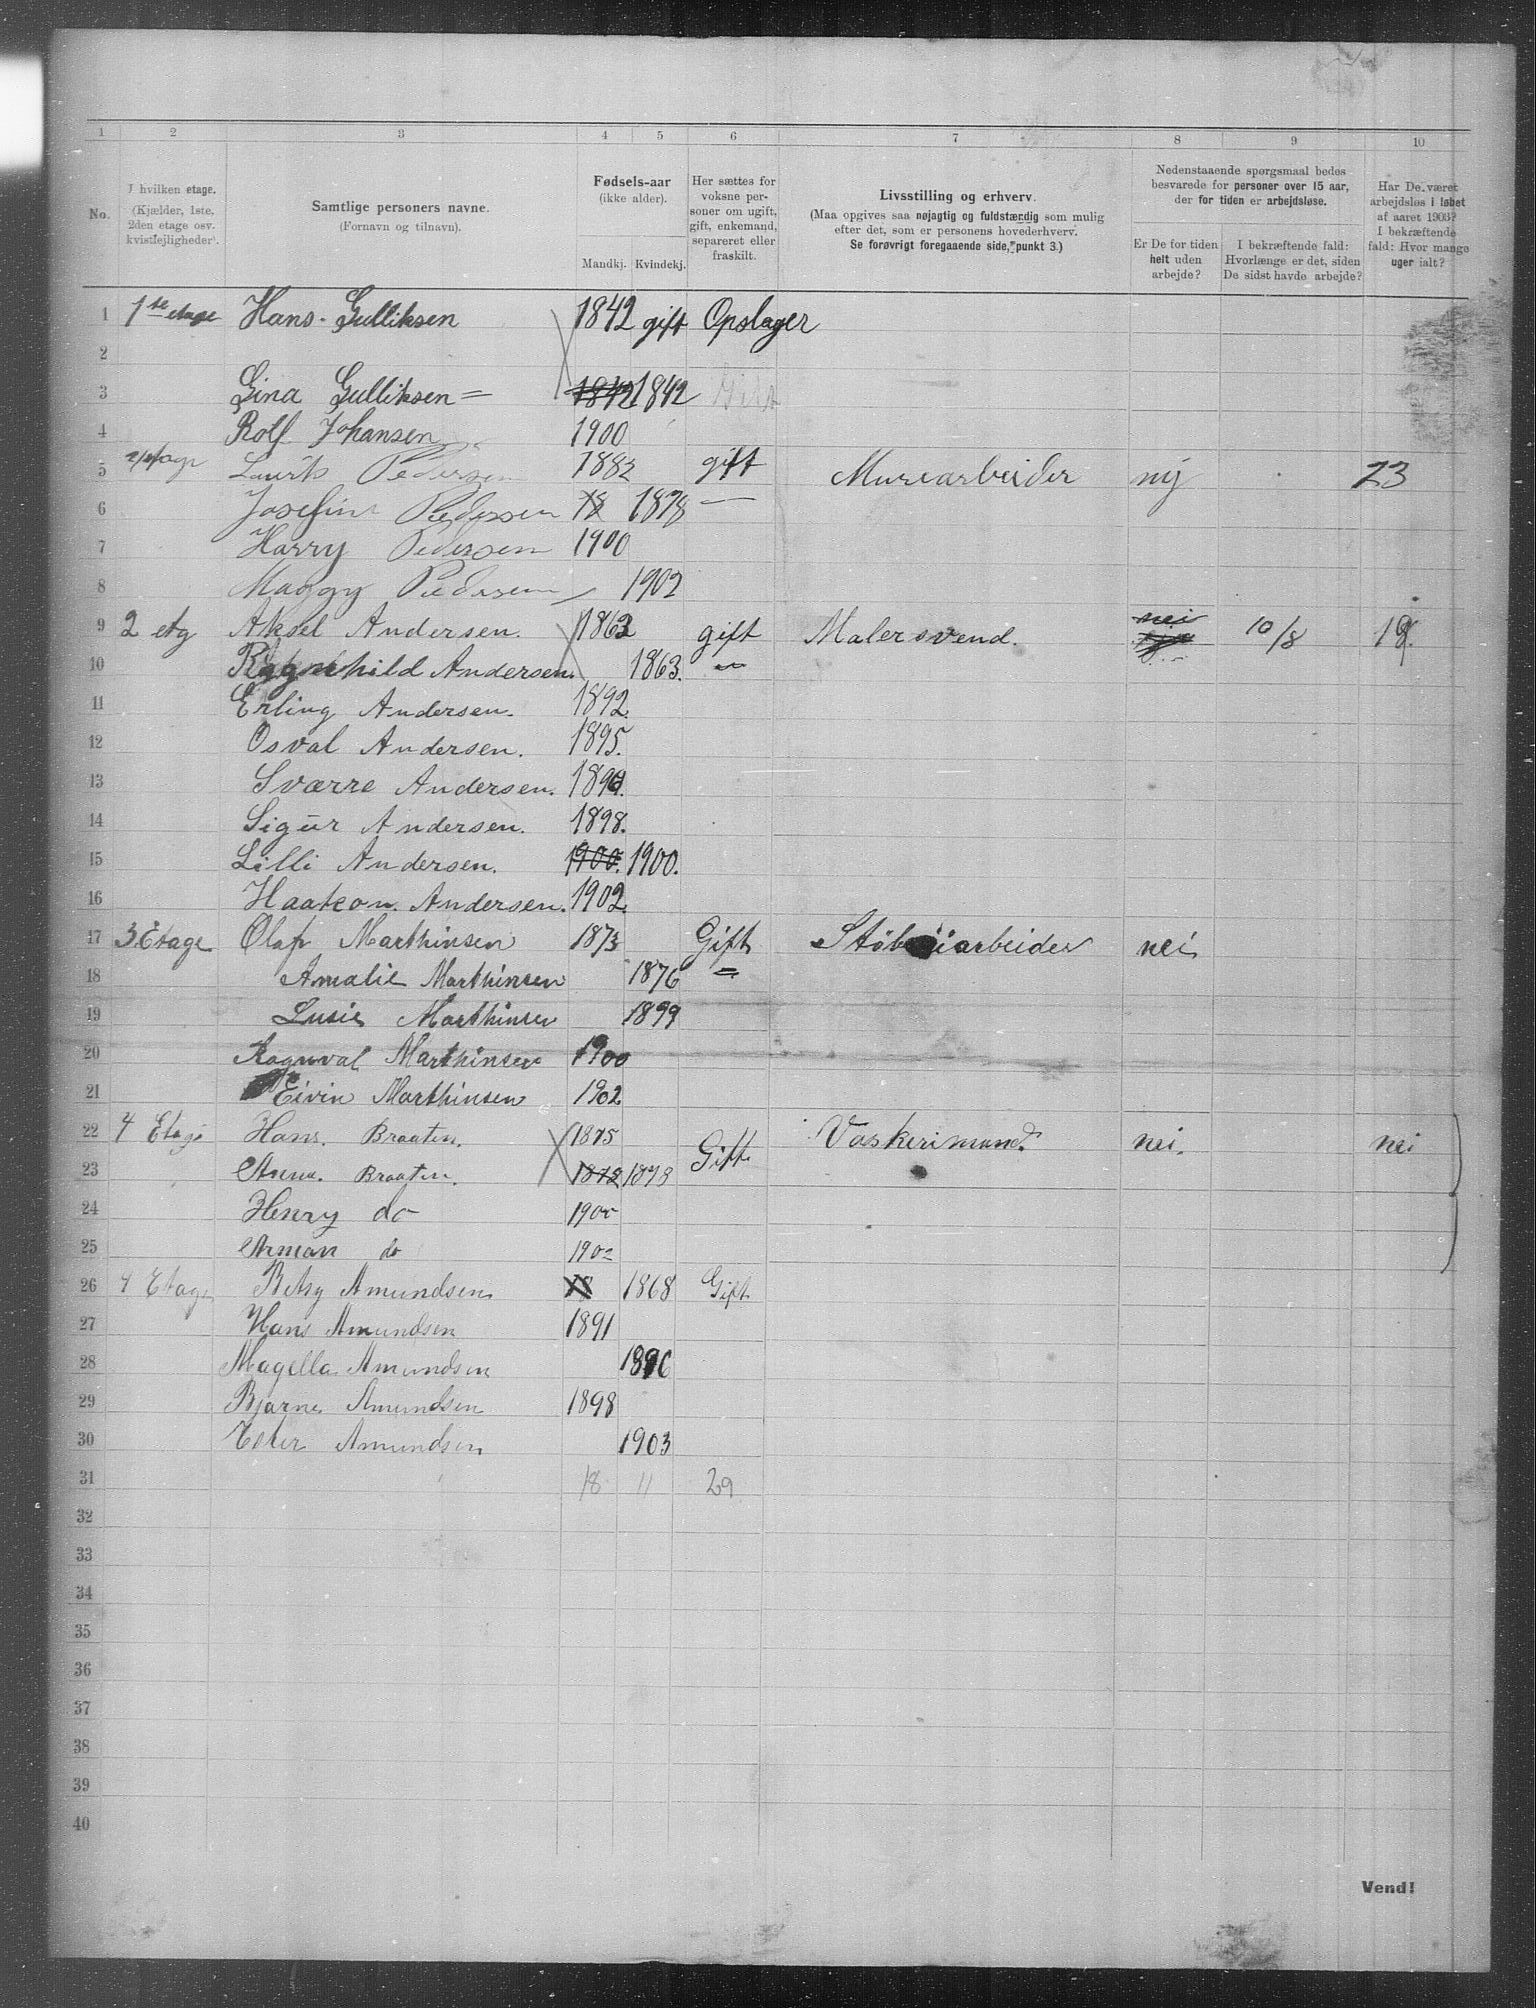 1 2 3 4 5 6 7 8 9 10
No.
I hvilken etage.
(Kjælder, 1ste, 2den etage osv. kvistleiligheder).
Samtlige personers navne.
(Fornavn og tilnavn).
Fødsels-aar
(ikke alder).
Mandkj. Kvindekj.
Her sættes for voksne personer om ugift, gift, enkemand, separeret eller fraskilt.
Livsstilling og erhverv.
(Maa opgives saa nøjagtig og fuldstændig som mulig efter det, som er personens hovederhverv.
Se forøvrigt foregaaende side, punkt 3.)
Nedenstaaende spørgsmaal bedes besvarede for personer over 15 aar, der for tiden er arbejdsløse.
Er De for tiden helt uden arbejde?
I bekræftende fald: Hvorlænge er det, siden De sidst havde arbejde?
Har De været arbejdsløs i løbet af aaret 1903? I bekræftende fald: Hvor mange uger ialt?
1 1ste etage Hans Gulliksen 1842 gift Opslager
2
3 Gina Gulliksen = 1842 1842 Gift
4 Rolf Johansen 1900
5 etage Laurits Pedersen 1882 gift Murearbeider nij 23
6 Josefine Pedersen 18 1878 —
7 Harry Pedersen 1900
8 Maggy Pedersen 1902
9 2 etg Aksel Andersen. 1863 gift Malersvend. nei 10/8 18.
10 Ragnhild Andersen. 1863. "
11 Erling Andersen. 1892.
12 Osval Andersen. 1895.
13 Sværre Andersen. 1896.
14 Sigur Andersen. 1898.
15 Lilli Andersen. 1900. 1900.
16 Haakon. Andersen. 1902.
17 3 Etage Olaf Marthinsen 1873 Gift Støberiarbeider nei
18 Amalie Marthinsen 1876 =
19 Lusie Marthinsen 1899
20 Ragnval Marthinsen 1900
21 Eivin Marthinsen 1902
22 4 Etage Hans. Braaten. 1875 Gift Vaskerimand. nei. nei
23 Anna. Braaten. 1878 1878
24 Henry do 1900
25 Arman do 1902
26 4 Etage Betsy Amundsen 18 1868 Gift
27 Hans Amundsen 1891
28 Magella Amundsen 1896
29 Bjarne Amundsen 1898
30 Ester Amundsen 1903
31 18 11 29
32
33
34
35
36
37
38
39
40
Vend!